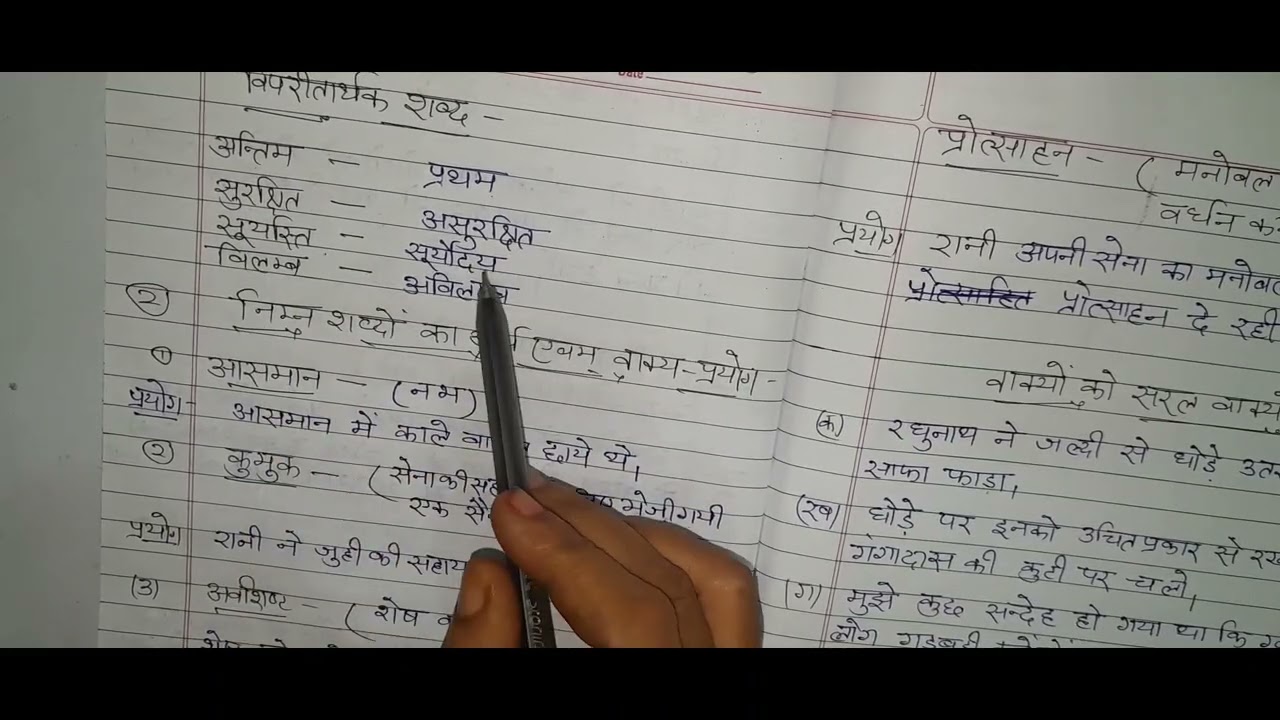 विपरीतार्थक शब्द -
अन्तिम - प्रथम
सुरक्षित - असुरक्षित
सूर्यास्त - सूर्योदय
विलम्ब -
२ निम्न शब्दों का एवम् वाक्य-प्रयोग -
① आसमान - (नभ)
प्रयोग- आसमान में काले छाये थे,
(२) कुमुक - (सेना की
एक भेजी गयी
प्रयोग रानी ने जुही की
(३) अवशिष्ट - (शेष
Date
प्रोत्साहन - ( मनोबल
वर्धन
प्रयोग रानी अपनी सेना का
प्रोत्साहन दे रही
वाक्यों को सरल
(क) रघुनाथ ने जल्दी से घोड़े
साफा फाड़ा,
(ख) घोड़े पर इनको उचित प्रकार से
गंगादास की कुटी पर चलो,
(ग) मुझे कुछ सन्देह हो गया था कि
लोग